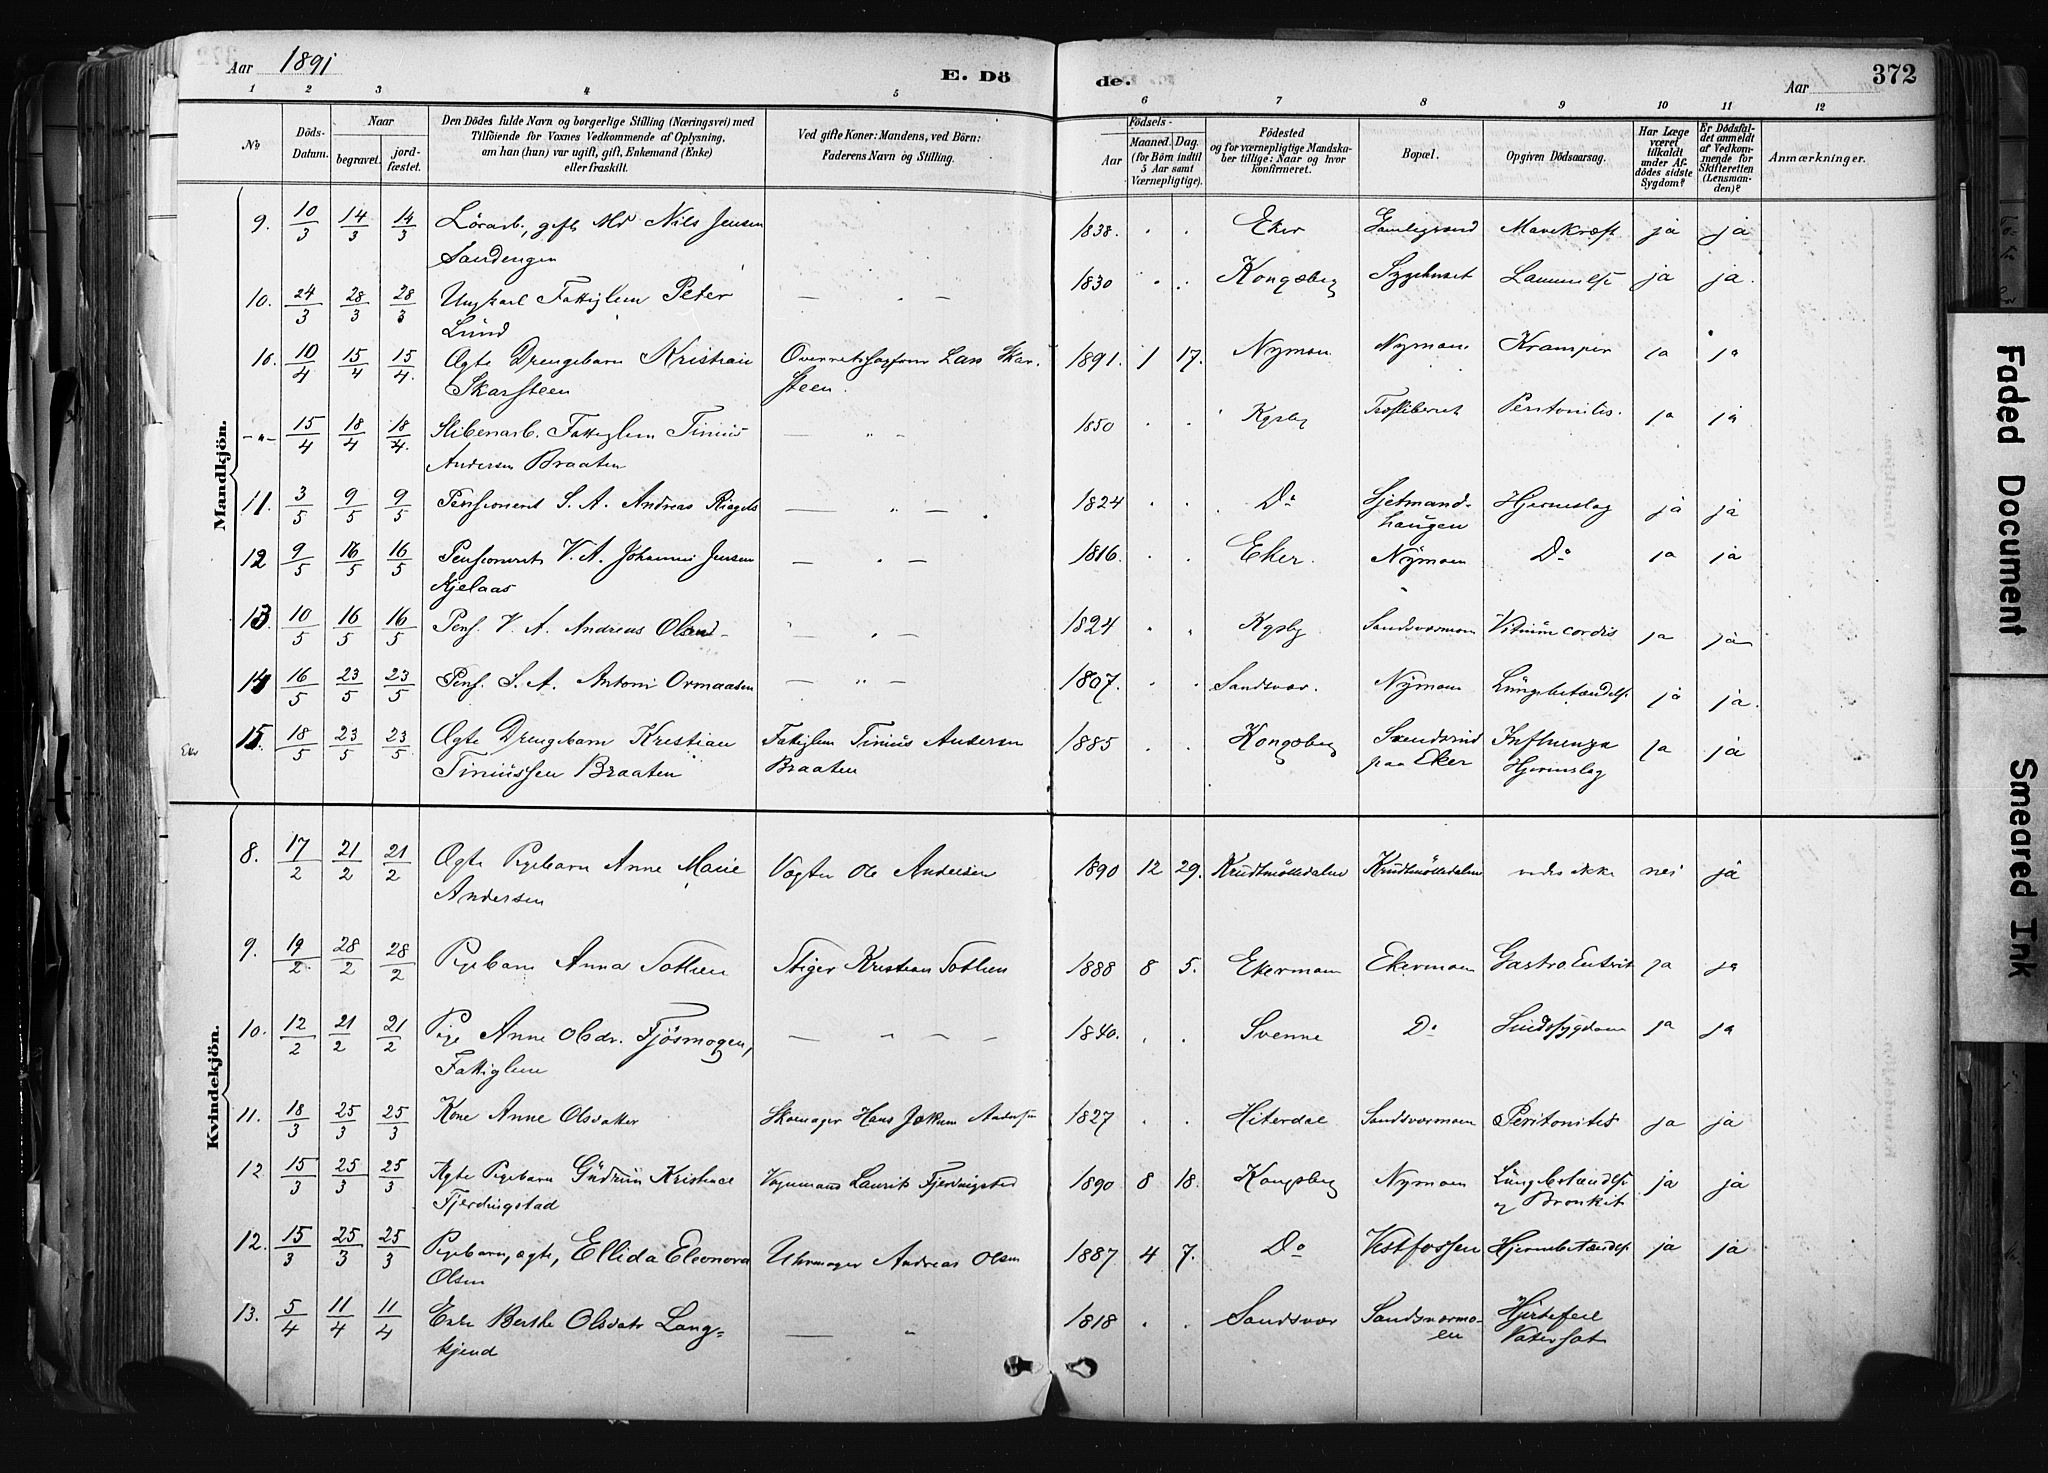 Aar 1891
E. Dö
de.
Aar
372
1 2 3 4 5 6 7 8 9 10 11 12
No
Döds-Datum.
Naar
begravet.
jord-fæstet.
Den Dödes fulde Navn og borgerlige Stilling (Næringsvei) med
Tilföiende for Voxnes Vedkommende af Oplysning,
om han (hun) var ugift, gift, Enkemand (Enke)
eller fraskilt.
Ved gifte Koner: Mandens, ved Börn:
Faderens Navn og Stilling.
Födsels-
Aar
Maaned. Dag.
(for Börn indtil
5 Aar samt
Værnepligtige).
Födested
og for værnepligtige Mandska-
ber tillige: Naar og hvor
konfirmeret.
Bopæl.
Opgiven Dödsaarsag.
Har Læge
været
tilkaldt
under Af-
dödes sidste
Sygdom?
Er Dödsfal-
det anmeldt
af Vedkom-
mende for
Skifteretten
(Lensman-
den)?
Anmærkninger.
Mandkjön.
9. 10/3 14/3 14/3 gift Nils Jensen 1838. Eker ja ja
Sandengen
10. 24/3 28/3 28/3 Ungkarl Fattiglem Peter — " — 1830 Kongsberg Sygehuset ja ja.
Lund
10. 10/4 15/4 15/4. Ægte Drengebarn Kristian Lars Skar- 1891. 1 17. Nymoen Nymoen Kramper ja ja
Skarsteen steen.
-"- 15/4 18/4 18/4. Fattiglem Tinius — " — 1850 Kgsbg Peritonitis. ja ja
Andersen Braaten
11. 3/5 9/5 9/5 Pensioneret S. A. Andreas — " — 1824 Do Hjerneslag ja ja
haugen
12 9/5 16/5 16/5 Pensioneret V. A. Johannes Jensen — " — 1816. Eker. Nymoen Do ja ja
Kjelaas
13. 10/5 16/5 16/5 Pens. V. A. Andreas Olsen " — 1824 Kgsbg Sandsværmoen Vitium cordis ja ja
14 16/5 23/5 23/5 Pens. S. A. Anton Ormaasen — " — 1807. Sandsvær. Nymoen Lungebetændelse ja ja.
Eker 15. 18/5 23/5 23/5 Ægte Drengebarn Kristian Fattiglem Tinius Andersen 1885 Kongsberg Influenza ja ja
Tiniussen Braaten Braaten paa Eker Hjerneslag
Kvindekjön.
8. 17/2 21/2 21/2 Ægte Pigebarn Anne Marie Vogter Ole Andersen 1890 12 29. Krudtmölledalen Krudtmölledalen vides ikke nei ja
Andersen
9. 19/2. 28/2 28/2 Pigebarn Anna Stiger Kristian 1888 8 5. Ekermoen Ekermoen Gastro. Enterit ja ja
10. 12/2 21/2 21/2 Pige Anne Olsdr. Fjösmogen, — " — " — 1840. Svenne Do Sindssygdom ja ja
Fattiglem
11. 18/3 25/3 25/3 Kone Anne Olsdatter Skomager Hans Jakum Andersen 1827 Hiterdal Sandsværmoen Peritonites ja ja
12. 15/3 25/3 25/3 Ægte Pigebarn Gudrun Vognmand Laurits Fjerdingstad 1890 8 18. Kongsberg Nymoen Lungebetændelse ja ja
Fjerdingstad og Bronkit
12. 15/3 25/3 25/3 Pigebarn, ægte, Ellida Eleonora Uhrmager Andreas Olsen 1887 4 7. Do Vestfossen Hjernebetændelse ja ja
Olsen
13. 5/4 11/4 11/4 Enke Berthe Olsdatr Lang- — " 1818 Sandsvær Sandsværmo- Hjertefeil
kjend en Vatersot
Faded Document
Smeared Ink